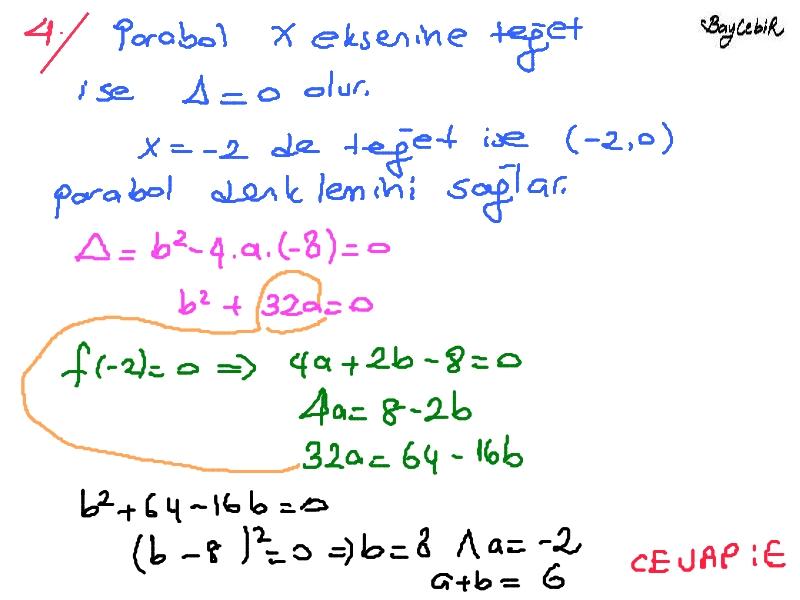 4/ Parabol x eksenine teğet
BayCebiR
ise Δ = 0 olur.
x = -2 de teğet ise (-2,0)
parabol denklemini sağlar.
Δ = b² - 4.a.(-8) = 0
b² + 32a = 0
f(-2) = 0 ⇒ 4a + 2b - 8 = 0
4a = 8 - 2b
32a = 64 - 16b
b² + 64 - 16b = 0
(b - 8)² = 0 ⇒ b = 8 ∧ a = -2
a + b = 6
CEVAP : E